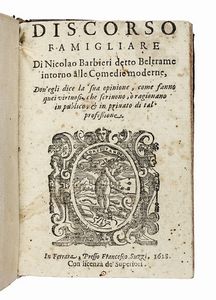 DISCORSO
FAMIGLIARE
Di Nicolao Barbieri detto Beltrame
intorno alle Comedie moderne,
Dou'egli dice la sua opinione, come fanno
quei virtuosi, che scriuono, o ragionano
in publico, & in priuato di tal
professione.
In Ferrara, Presso Francesco Suzzi, 1628.
Con licenza de' Superiori.